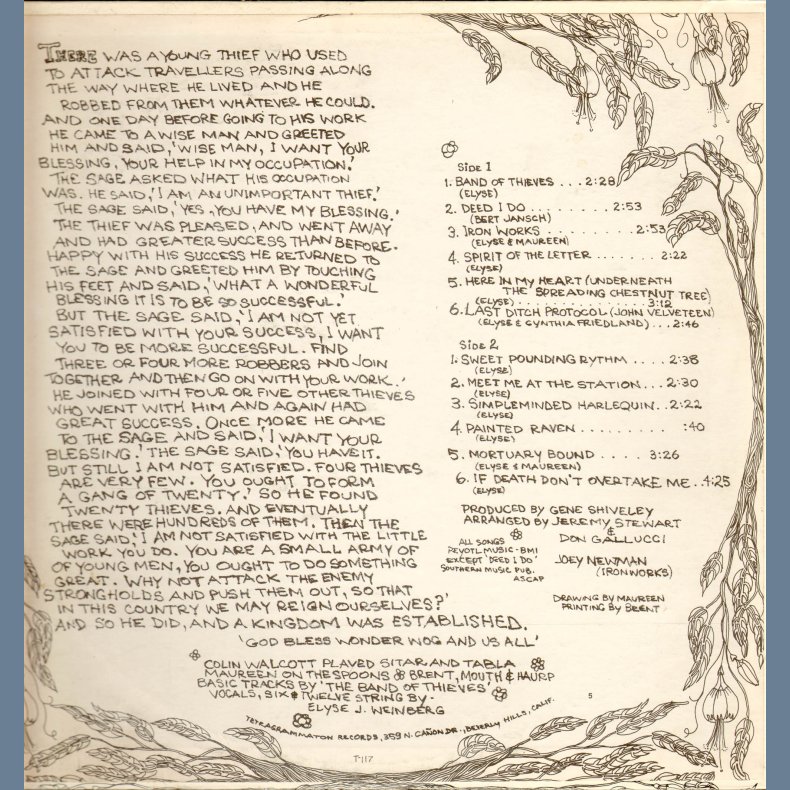 THERE WAS A YOUNG THIEF WHO USED
TO ATTACK TRAVELLERS PASSING ALONG
THE WAY WHERE HE LIVED AND HE
ROBBED FROM THEM WHATEVER HE COULD.
AND ONE DAY BEFORE GOING TO HIS WORK
HE CAME TO A WISE MAN AND GREETED
HIM AND SAID, 'WISE MAN, I WANT YOUR
BLESSING, YOUR HELP IN MY OCCUPATION.'
THE SAGE ASKED WHAT HIS OCCUPATION
WAS. HE SAID, 'I AM AN UNIMPORTANT THIEF.'
THE SAGE SAID, 'YES, YOU HAVE MY BLESSING.'
THE THIEF WAS PLEASED, AND WENT AWAY
AND HAD GREATER SUCCESS THAN BEFORE.
HAPPY WITH HIS SUCCESS HE RETURNED TO
THE SAGE AND GREETED HIM BY TOUCHING
HIS FEET AND SAID, 'WHAT A WONDERFUL
BLESSING IT IS TO BE SO SUCCESSFUL.'
BUT THE SAGE SAID, 'I AM NOT YET
SATISFIED WITH YOUR SUCCESS, I WANT
YOU TO BE MORE SUCCESSFUL. FIND
THREE OR FOUR MORE ROBBERS AND JOIN
TOGETHER AND THEN GO ON WITH YOUR WORK.'
HE JOINED WITH FOUR OR FIVE OTHER THIEVES
WHO WENT WITH HIM AND AGAIN HAD
GREAT SUCCESS. ONCE MORE HE CAME
TO THE SAGE AND SAID, 'I WANT YOUR
BLESSING.' THE SAGE SAID, 'YOU HAVE IT.
BUT STILL I AM NOT SATISFIED. FOUR THIEVES
ARE VERY FEW. YOU OUGHT TO FORM
A GANG OF TWENTY.' SO HE FOUND
TWENTY THIEVES. AND EVENTUALLY
THERE WERE HUNDREDS OF THEM. THEN THE
SAGE SAID, 'I AM NOT SATISFIED WITH THE LITTLE
WORK YOU DO. YOU ARE A SMALL ARMY OF
OF YOUNG MEN, YOU OUGHT TO DO SOMETHING
GREAT. WHY NOT ATTACK THE ENEMY
STRONGHOLDS AND PUSH THEM OUT, SO THAT
IN THIS COUNTRY WE MAY REIGN OURSELVES?'
AND SO HE DID, AND A KINGDOM WAS ESTABLISHED.
'GOD BLESS WONDER WOG AND US ALL'
COLIN WALCOTT PLAYED SITAR AND TABLA
MAUREEN ON THE SPOONS & BRENT, MOUTH & HAURP
BASIC TRACKS BY 'THE BAND OF THIEVES'
VOCALS, SIX & TWELVE STRING BY -
ELYSE J. WEINBERG
TETRAGRAMMATON RECORDS, 359 N. CAÑON DR., BEVERLY HILLS, CALIF.
T-117
SIDE 1
1. BAND OF THIEVES . . . 2:28
(ELYSE)
2. DEED I DO . . . . . . . . . 2:53
(BERT JANSCH)
3. IRON WORKS . . . . . . . . 2:53
(ELYSE & MAUREEN)
4. SPIRIT OF THE LETTER . . . . . . . 2:22
(ELYSE)
5. HERE IN MY HEART (UNDERNEATH
THE SPREADING CHESTNUT TREE)
(ELYSE) . . . . . . . . . . . . . . 3:12
6. LAST DITCH PROTOCOL (JOHN VELVETEEN)
(ELYSE & CYNTHIA FRIEDLAND) . . . 2:46
SIDE 2
1. SWEET POUNDING RYTHM . . . . 2:38
(ELYSE)
2. MEET ME AT THE STATION . . . 2:30
(ELYSE)
3. SIMPLEMINDED HARLEQUIN . . 2:22
(ELYSE)
4. PAINTED RAVEN . . . . . . . . . :40
(ELYSE)
5. MORTUARY BOUND . . . . 3:26
(ELYSE & MAUREEN)
6. IF DEATH DON'T OVERTAKE ME . . 4:25
(ELYSE)
PRODUCED BY GENE SHIVELEY
ARRANGED BY JEREMY STEWART
&
DON GALLUCCI
JOEY NEWMAN
(IRONWORKS)
ALL SONGS
REVOTL MUSIC - BMI
EXCEPT 'DEED I DO'
SOUTHERN MUSIC PUB.
ASCAP
DRAWING BY MAUREEN
PRINTING BY BRENT
5